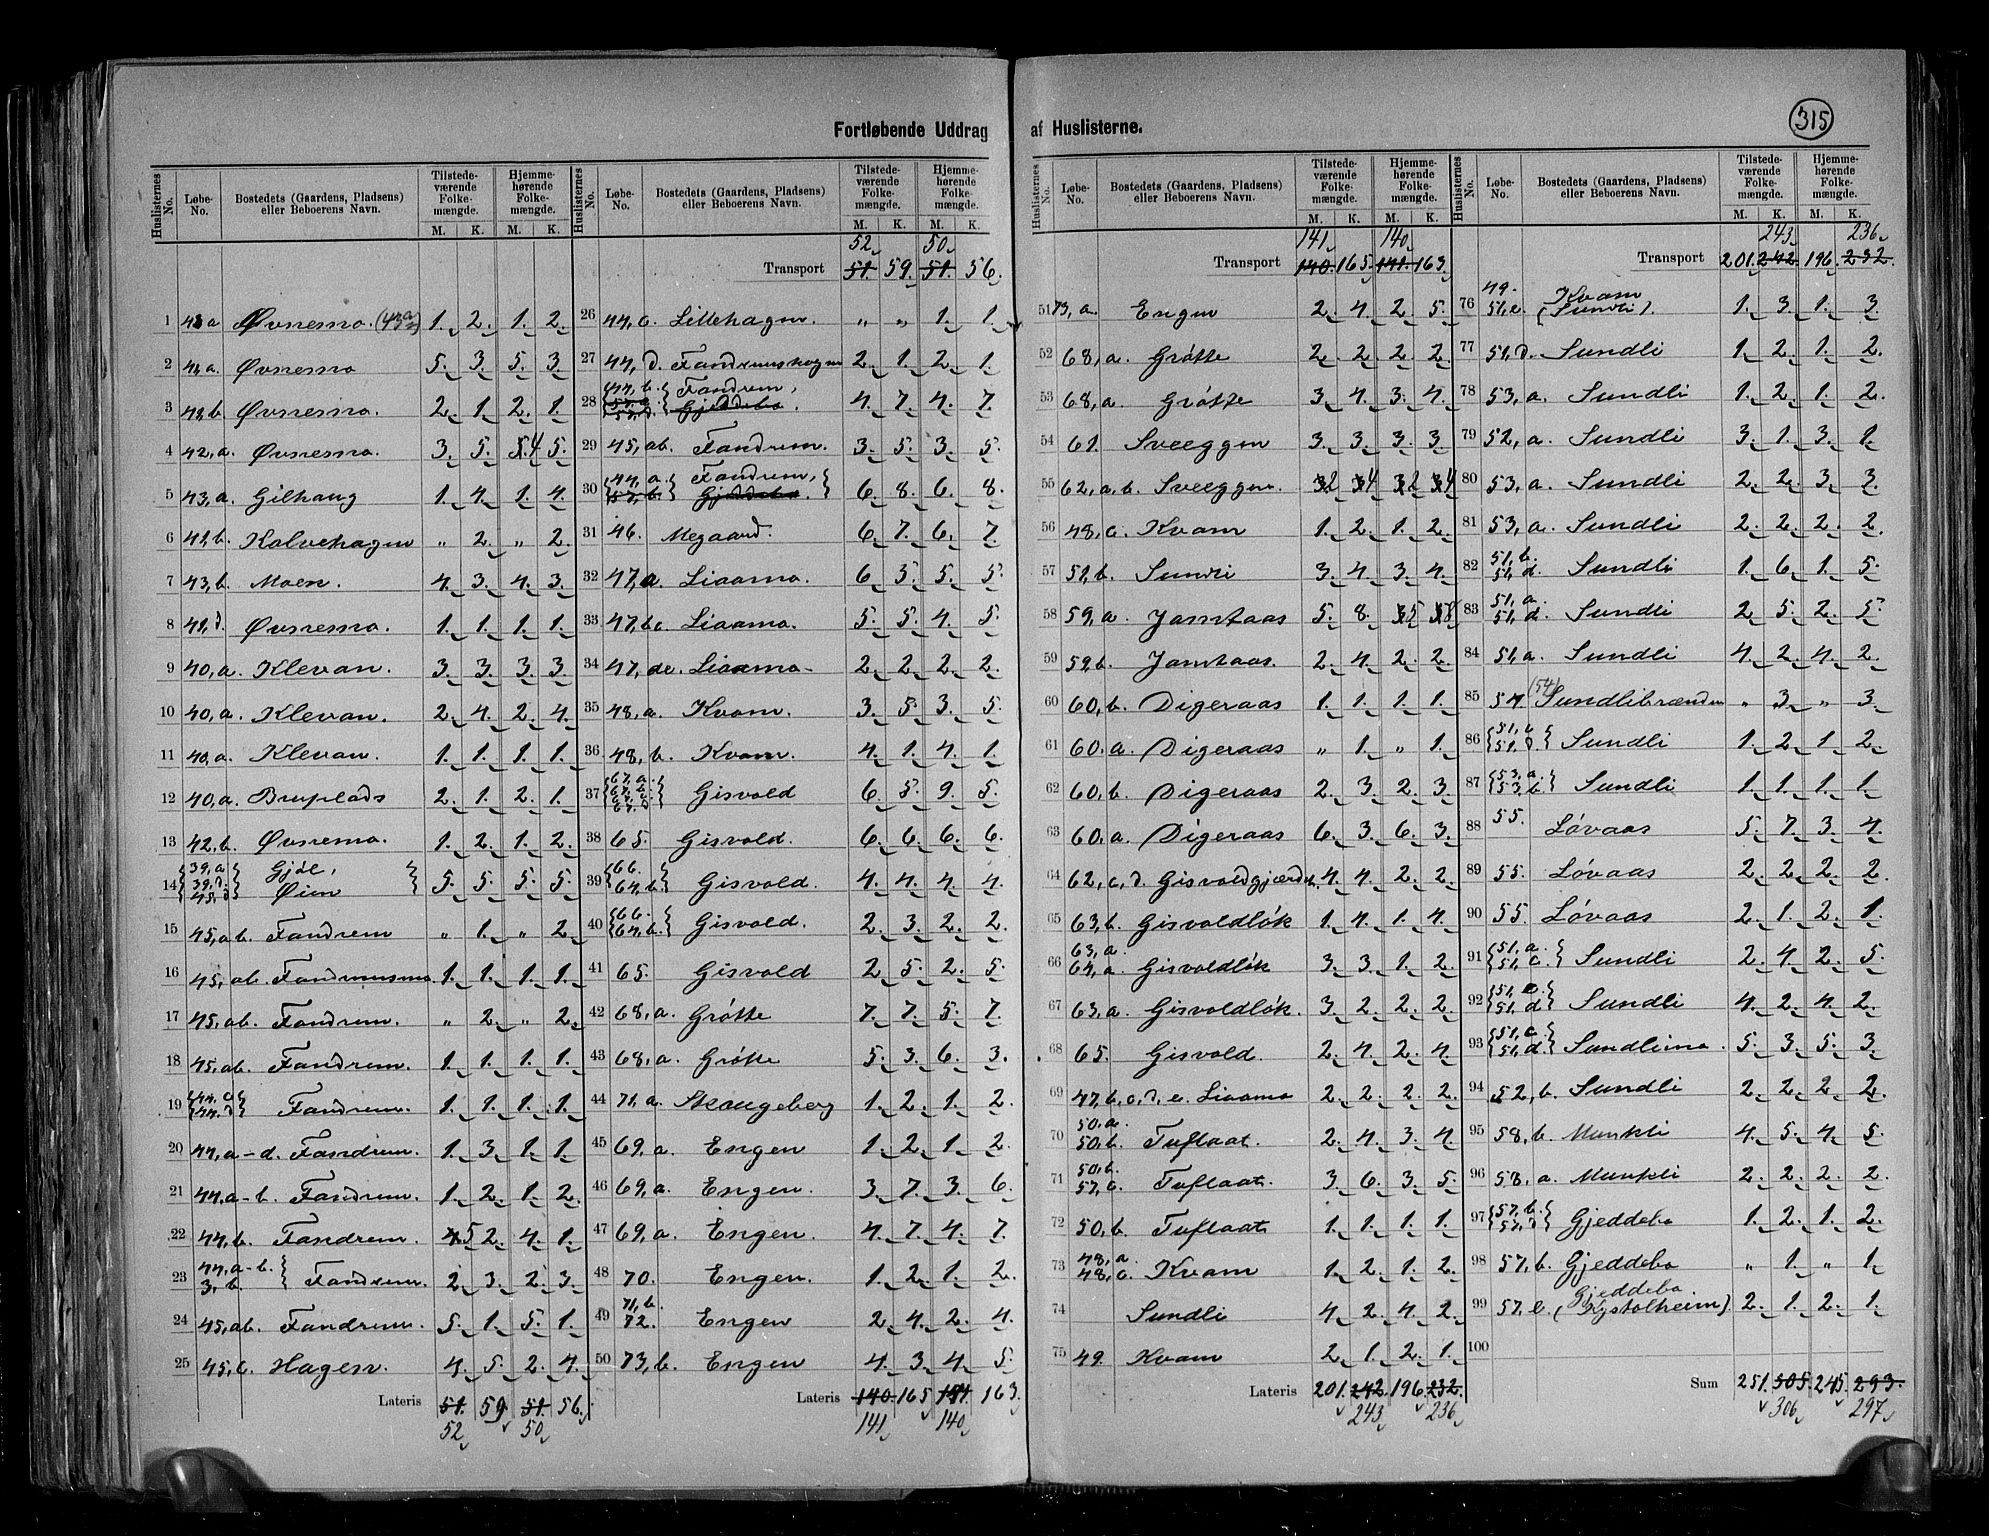 315
Fortløbende Uddrag af Huslisterne.
Huslisternes No. Løbe-No. Bostedets (Gaardens, Pladsens) eller Beboerens Navn. Tilstedeværende Folkemængde. M. K. Hjemmehørende Folkemængde. M. K.
1 Øvnesmo. (43a) 1. 2. 1. 2.
2 Øvnesmo 5. 3. 5. 3.
3 Øvnesmo. 2. 1. 2. 1.
4 42, a. Øvnesmo. 3. 5. 4 5.
5 43, a. Gilhaug 1. 4. 1. 4.
6 41, b. Kalvehagen „ 2. „ 2.
7 43, b. Moen. 4. 3. 4. 3.
8 41, d. Øvnesmo. 1. 1. 1. 1.
9 40, a. Klevan. 3. 3. 3. 3.
10 40, a. Klevan. 2. 4. 2. 4.
11 40, a. Klevan. 1. 1. 1. 1.
12 40, a. Bruplads 2. 1. 2. 1.
13 42, b. Øvnesmo. 1. 2. 1. 2.
14 39, a 39, d. 45, d Gjøl, Øien 5. 5. 5. 5.
15 45, ab. Fandrem „ 1. „ 2.
16 45, ab. Fandremsmo 1. 1. 1. 1.
17 45, ab. Fandrem. „ 2. „ 2.
18 45, ab. Fandrem. 1. 1. 1. 1.
19 44, c 44, d Fandrem. 1. 1. 1. 1.
20 44, a-d. Fandrem. 1. 3. 1. 1.
21 44, a-b. Fandrem. 1. 2. 1. 2.
22 44, b. Fandrem. 5 2. 4. 1.
23 44, a-b. 3, b. Fandrem. 2. 3. 2. 3.
24 45, ab. Fandrem. 5. 1. 5. 1.
25 45, c. Hagen. 4. 5. 2. 4.
Lateris 51. 59 51. 56.
52 50
Huslisternes No. Løbe-No. Bostedets (Gaardens, Pladsens) eller Beboerens Navn. Tilstedeværende Folkemængde. M. K. Hjemmehørende Folkemængde. M. K.
52 50
Transport 51. 59. 51. 56.
26 44, c. Lillehagen. „ „ 1. 1.
27 44, d. Fandremshagen 2. 1. 2. 1.
28 44, b. Fandrem, Gjeddebo. 4. 7. 4. 7.
29 45, ab. Fandrem. 3. 5. 3. 5.
30 44, a. 57, b. Fandrem, Gjeddebo. 6. 8. 6. 8.
31 46. Megaard. 6. 7. 6. 7.
32 47, a. Liaamo. 6 5. 5. 5.
33 47, bc. Liaamo. 5. 5. 4. 5.
34 47, de. Liaamo- 2. 2. 2. 2.
35 48, a. Kvam. 3. 5. 3. 5.
36 48, b. Kvam. 4. 1. 4. 1.
37 67, a. Gisvold 6. 5. 9. 5.
38 65. Gisvold. 6. 6. 6. 6.
39 66. 64, b. Gisvold. 4. 4. 4. 4.
40 66. 64, b. Gisvold. 2. 3. 2. 2.
41 65. Gisvold 2. 5. 2. 5.
42 68, a. Grøtte 7. 7. 5. 7.
43 68, a. Grøtte 5. 3. 6. 3.
44 71, a. Skaugeberg 1. 2. 1. 2.
45 69, a. Engen 1. 2. 1. 2.
46 69, a. Engen. 3. 7. 3. 6.
47 69, a. Engen. 4. 7. 4. 7.
48 70. Engen. 1. 2. 1. 2.
49 71, b. 72. Engen 2. 4. 2. 4.
50 73, b. Engen 4. 3. 4. 5.
Lateris 140. 165 163.
141 140
Huslisternes No. Løbe-No. Bostedets (Gaardens, Pladsens) eller Beboerens Navn. Tilstedeværende Folkemængde. M. K. Hjemmehørende Folkemængde. M. K.
141 140
Transport 140. 165. 141. 163.
51 73, a. Engen 2. 4. 2. 5.
52 68, a. Grøtte 2. 2. 2. 2.
53 68, a. Grøtte 3. 4. 3. 4.
54 61. Sveeggen 3. 3. 3. 3.
55 62, a, b. Sveeggen. 2 4 2 4
56 48, c. Kvam 1. 2. 1. 2.
57 51, b. Sundli 3. 4. 3. 4.
58 59, a. Jamtaas 5. 8. 5 8
59 59, b. Jamtaas. 2. 4. 2. 2.
60 60, b. Digeraas 1. 1. 1. 1.
61 60, a. Digeraas „ 1. „ 1.
62 60, b. Digeraas 2. 3. 2. 3.
63 60, a. Digeraas 6. 3. 6. 3.
64 62, c, d. Gisvoldgjærdet. 4. 4. 2. 2.
65 63, b. Gisvoldløk 1. 4. 1. 4.
66 63, a. 64, a. Gisvoldløk 3. 3. 1. 2.
67 63, a. Gisvoldløk. 3. 2. 2. 2.
68 65. Gisvold. 2. 4. 2. 4.
69 47, b, c, d, e. Liaamo 2. 2. 2. 2.
70 50, a. 50, b. Tuflaat. 2. 4. 3. 4.
71 50, b. 57, c. Tuflaat. 3. 6. 3. 5.
72 50, b. Tuflaat 1. 1. 1. 1.
73 48, a. 48, c. Kvam 1. 2. 1. 2.
74 Sundli 4. 2. 4. 2.
75 49. Kvam 2. 1. 2. 1.
Lateris 201. 242. 196. 232.
243 236
Huslisternes No. Løbe-No. Bostedets (Gaardens, Pladsens) eller Beboerens Navn. Tilstedeværende Folkemængde. M. K. Hjemmehørende Folkemængde. M. K.
243 236
Transport 201. 242. 196. 232.
76 49. 51, e. Kvam (Sundli). 1. 3. 1. 3.
77 51, d. Sundli 1. 2. 1. 2.
78 53, a. Sundli 1. 2. 1. 2.
79 52, a. Sundli 3. 1. 3. 1.
80 53, a. Sundli 2. 2. 3. 3.
81 53, a. Sundli 2. 2. 2. 2.
82 51, b. 51, d. Sundli 1. 6. 1. 5.
83 51, a. 51, d. Sundli 2. 5. 2. 5.
84 51, a. Sundli 4. 2. 4. 2.
85 54 (54) Sundlibrænden „ 3. „ 3.
86 51, d. Sundli 1. 2. 1. 2.
87 53, a. 53, b. Sundli 1. 1. 1. 1.
88 55. Løvaas 5. 7. 3. 4.
89 55. Løvaas 2. 2. 2. 2.
90 55. Løvaas 2. 1. 2. 1.
91 51, a. 51, c. Sundli 2. 4. 2. 5.
92 51, d Sundli 4. 2. 4. 2.
93 51, c. 51, d. Sundlimo. 5. 3. 5. 3.
94 52, b. Sundli 2. 2. 2. 2.
95 58, b. Munkli 4. 5. 4. 5.
96 58, a. Munkli 2. 2. 2. 2.
97 57, b. 57, d Gjeddebo 1. 2. 1. 2.
98 57, b. Gjeddebo „ 1. „ 1.
99 57, e. Gjeddebo. (Kystolheim) 2. 1. 2. 1.
100
Sum 251. 305. 245. 293.
306 297